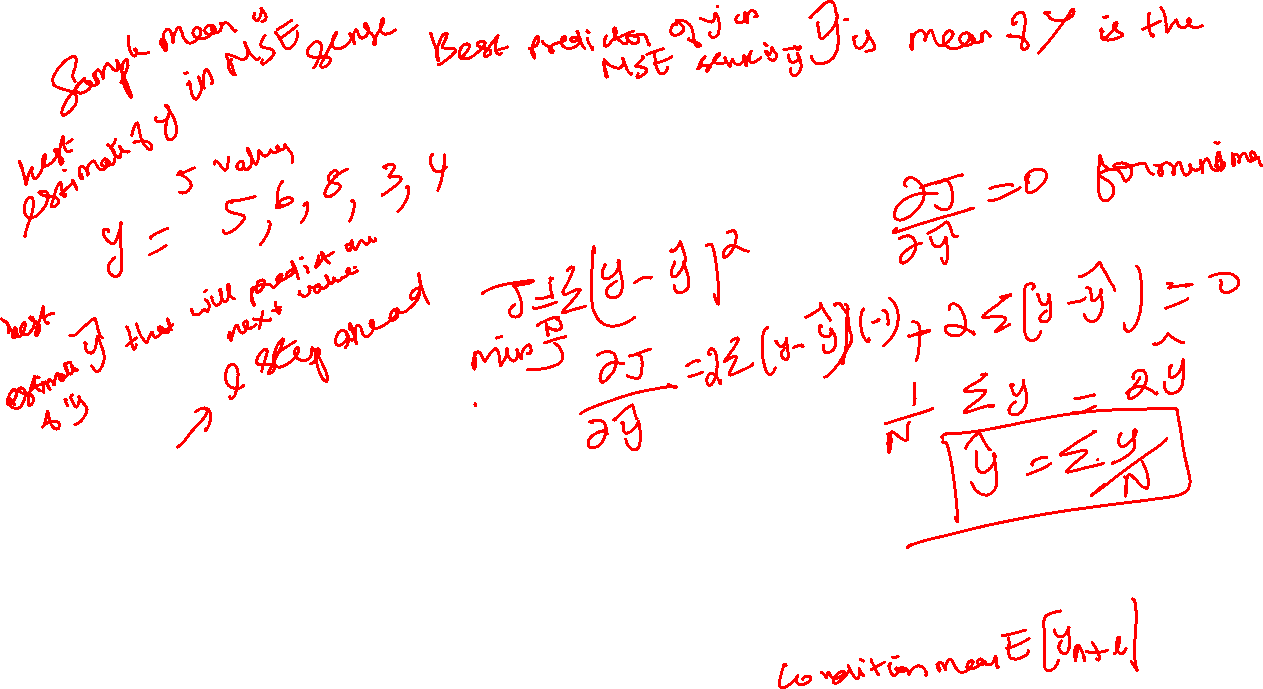 Sample mean is
best
estimate of y in MSE sense
Best predictor of y in
MSE sense is ȳ
ŷ is mean of y is the
5 values
y = 5, 6, 8, 3, 4
best
estimate ŷ that will predict the
next value
of y
→ l step ahead
J = 1/N Σ(y - ŷ)²
min J
∂J/∂ŷ = 0 for minima
∂J/∂ŷ = 2Σ(y - ŷ)(-1) + 2Σ(y - ŷ) = 0
1/N Σy = 2ŷ
ŷ = Σy/N
condition mean E[yn+l]